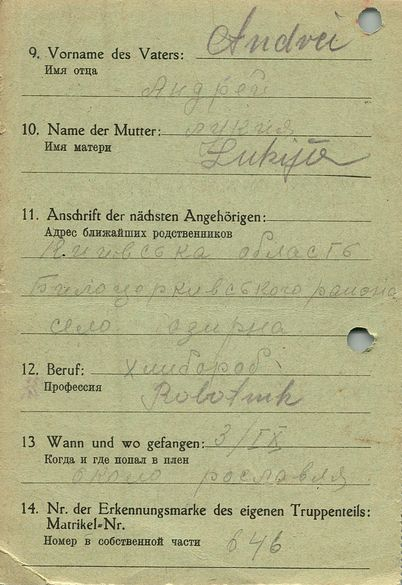 9. Vorname des Vaters: Andrei
Имя отца
Андрей
10. Name der Mutter: лукия
Имя матери
Lukija
11. Anschrift der nächsten Angehörigen:
Адрес ближайших родственников
Киивська область
Билоцоркивського района
село озирна
12. Beruf: хлибороб
Профессия
Robotnik
13 Wann und wo gefangen: 3/IX
Когда и где попал в плен
около рославля
14. Nr. der Erkennungsmarke des eigenen Truppenteils:
Matrikel-Nr.
Номер в собственной части 646